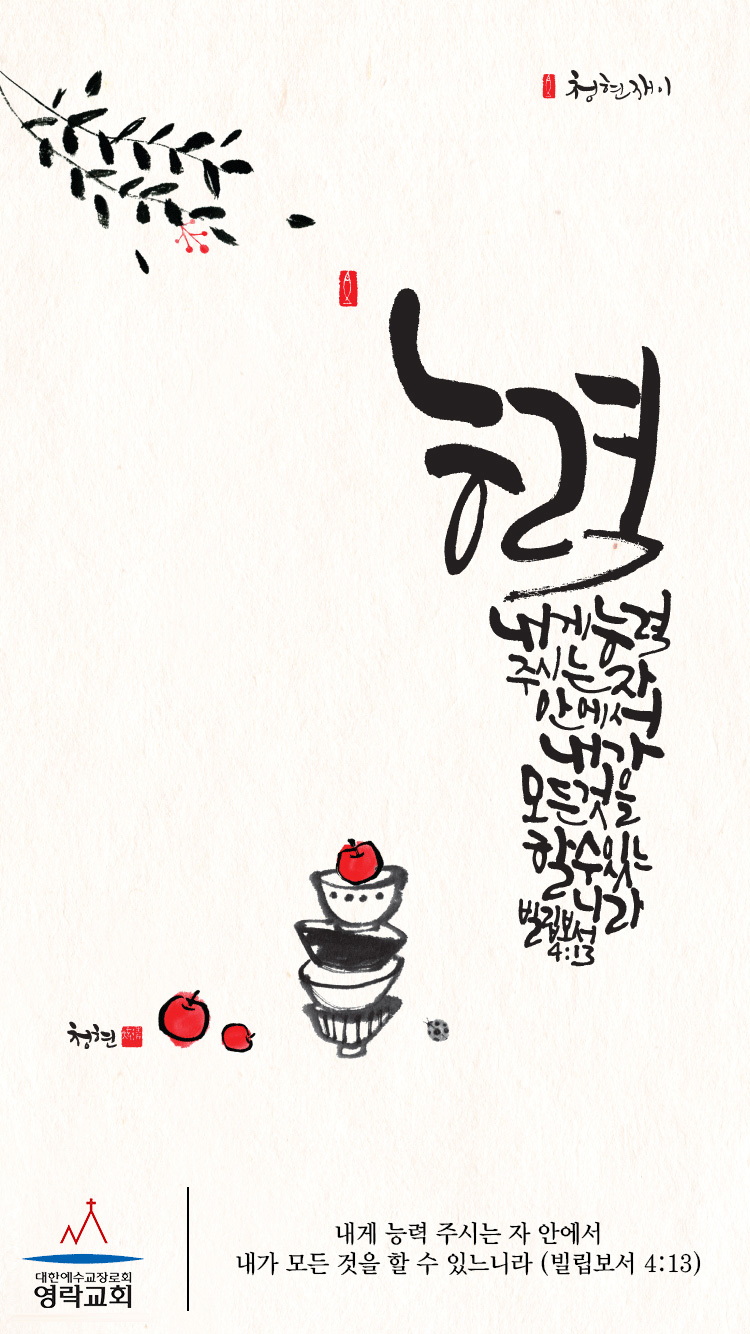 청현재이
능력
내게 능력
주시는 자
안에서
내가
모든 것을
할 수 있느
니라
빌립보서
4:13
청현
대한예수교장로회
영락교회
내게 능력 주시는 자 안에서
내가 모든 것을 할 수 있느니라 (빌립보서 4:13)